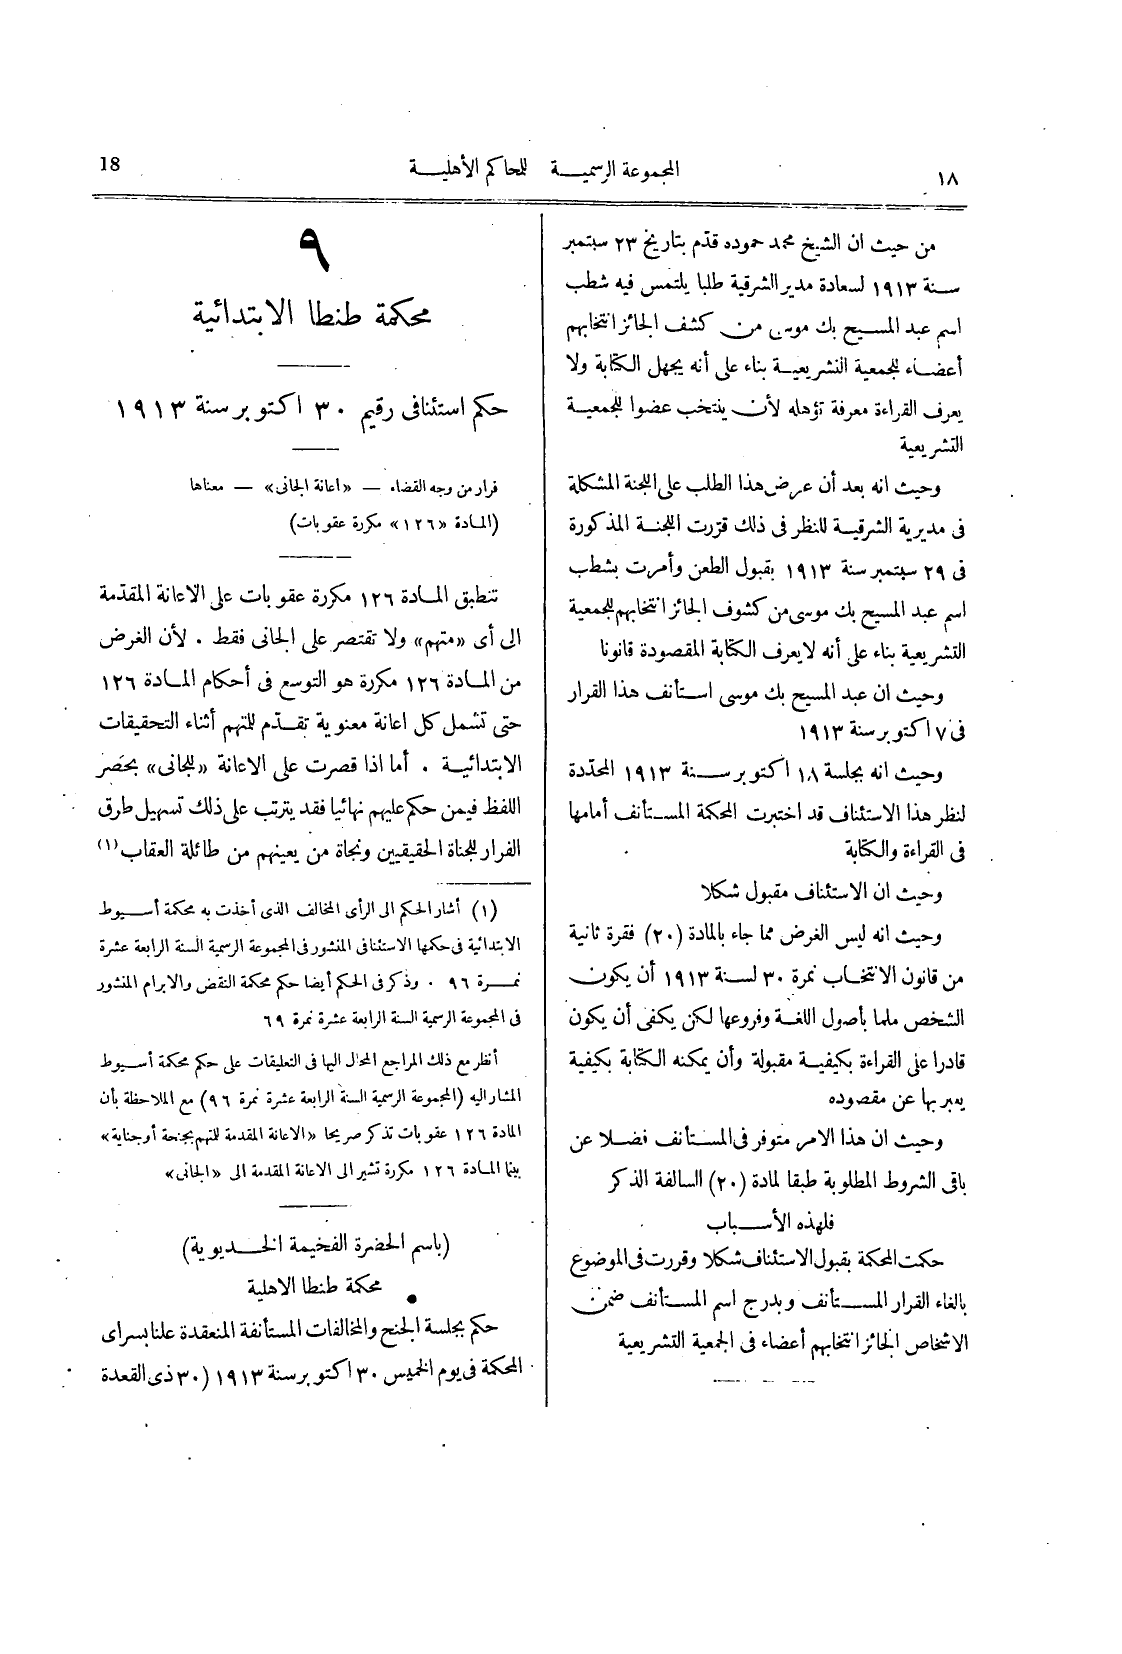 ١٨
المجموعة الرسمية للمحاكم الأهلية
18
من حيث ان الشيخ محمد حموده قدّم بتاريخ ٢٣ سبتمبر
سنة ١٩١٣ لسعادة مدير الشرقية طلبا يلتمس فيه شطب
اسم عبد المسيح بك موسى من كشف الجائز انتخابهم
أعضاء للجمعية التشريعية بناء على أنه يجهل الكتابة ولا
يعرف القراءة معرفة تؤهله لأن ينتخب عضوا للجمعية
التشريعية
وحيث انه بعد أن عرض هذا الطلب على اللجنة المشكلة
فى مديرية الشرقية للنظر فى ذلك قرّرت اللجنة المذكورة
فى ٢٩ سبتمبر سنة ١٩١٣ بقبول الطعن وأمرت بشطب
اسم عبد المسيح بك موسى من كشوف الجائز انتخابهم للجمعية
التشريعية بناء على أنه لا يعرف الكتابة المقصودة قانونا
وحيث ان عبد المسيح بك موسى استأنف هذا القرار
فى ٧ اكتوبر سنة ١٩١٣
وحيث انه بجلسة ١٨ اكتوبر سنة ١٩١٣ المحدّدة
لنظر هذا الاستئناف قد اختبرت المحكمة المستأنف أمامها
فى القراءة والكتابة
وحيث ان الاستئناف مقبول شكلا
وحيث انه ليس الغرض مما جاء بالمادة (٢٠) فقرة ثانية
من قانون الانتخاب نمرة ٣٠ لسنة ١٩١٣ أن يكون
الشخص ملما بأصول اللغة وفروعها لكن يكفى أن يكون
قادرا على القراءة بكيفية مقبولة وأن يمكنه الكتابة بكيفية
يعبر بها عن مقصوده
وحيث ان هذا الامر متوفر فى المستأنف فضلا عن
باقى الشروط المطلوبة طبقا لمادة (٢٠) السالفة الذكر
فلهذه الأسباب
حكمت المحكمة بقبول الاستئناف شكلا وقررت فى الموضوع
بالغاء القرار المستأنف وبدرج اسم المستأنف ضمن
الاشخاص الجائز انتخابهم أعضاء فى الجمعية التشريعية
٩
محكمة طنطا الابتدائية
حكم استئنافى رقيم ٣٠ اكتوبر سنة ١٩١٣
فرار من وجه القضاء — «اعانة الجانى» — معناها
(المادة «١٢٦» مكررة عقوبات)
تنطبق المادة ١٢٦ مكررة عقوبات على الاعانة المقدّمة
الى أى «متهم» ولا تقتصر على الجانى فقط . لأن الغرض
من المادة ١٢٦ مكررة هو التوسع فى أحكام المادة ١٢٦
حتى تشمل كل اعانة معنوية تقدّم للمتهم أثناء التحقيقات
الابتدائية . أما اذا قصرت على الاعانة «للجانى» بحَصر
اللفظ فيمن حكم عليهم نهائيا فقد يترتب على ذلك تسهيل طرق
الفرار للجناة الحقيقيين ونجاة من يعينهم من طائلة العقاب (١)
(١) أشار الحكم الى الرأى المخالف الذى أخذت به محكمة أسيوط
الابتدائية فى حكمها الاستئنافى المنشور فى المجموعة الرسمية السنة الرابعة عشرة
نمرة ٩٦ . وذكر فى الحكم أيضا حكم محكمة النقض والابرام المنشور
فى المجموعة الرسمية السنة الرابعة عشرة نمرة ٦٩
أنظر مع ذلك المراجع المحال اليها فى التعليقات على حكم محكمة أسيوط
المشار اليه (المجموعة الرسمية السنة الرابعة عشرة نمرة ٩٦) مع الملاحظة بأن
المادة ١٢٦ عقوبات تذكر صريحا «الاعانة المقدمة للمتهم بجنحة أوجناية»
بينما المادة ١٢٦ مكررة تشير الى الاعانة المقدمة الى «الجانى»
(باسم الحضرة الفخيمة الخديوية)
محكمة طنطا الاهلية
حكم بجلسة الجنح والمخالفات المستأنفة المنعقدة علنا بسراى
المحكمة فى يوم الخميس ٣٠ اكتوبر سنة ١٩١٣ (٣٠ ذى القعدة